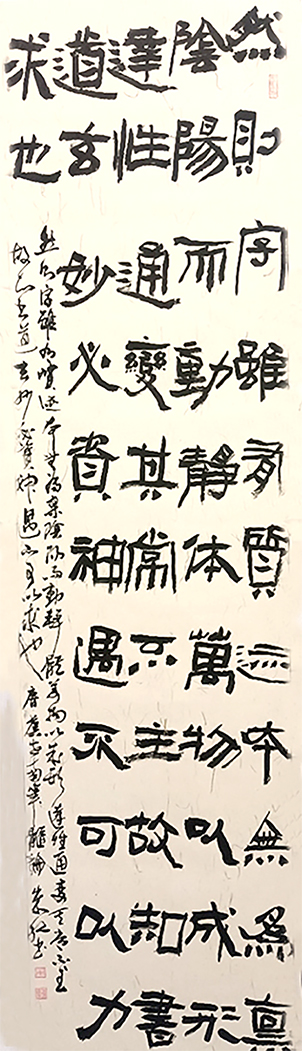 然則字雖有質迹本無為稟
陰陽而動靜体萬物以成形
達性通變其常不主故知書
道玄妙必資神遇不可以力
求也
然則字雖有質迹本無為稟陰陽而動靜體萬物以成形達性通變其常不主
故知書道玄妙必資神遇不可以力求也 唐虞世南筆髓論